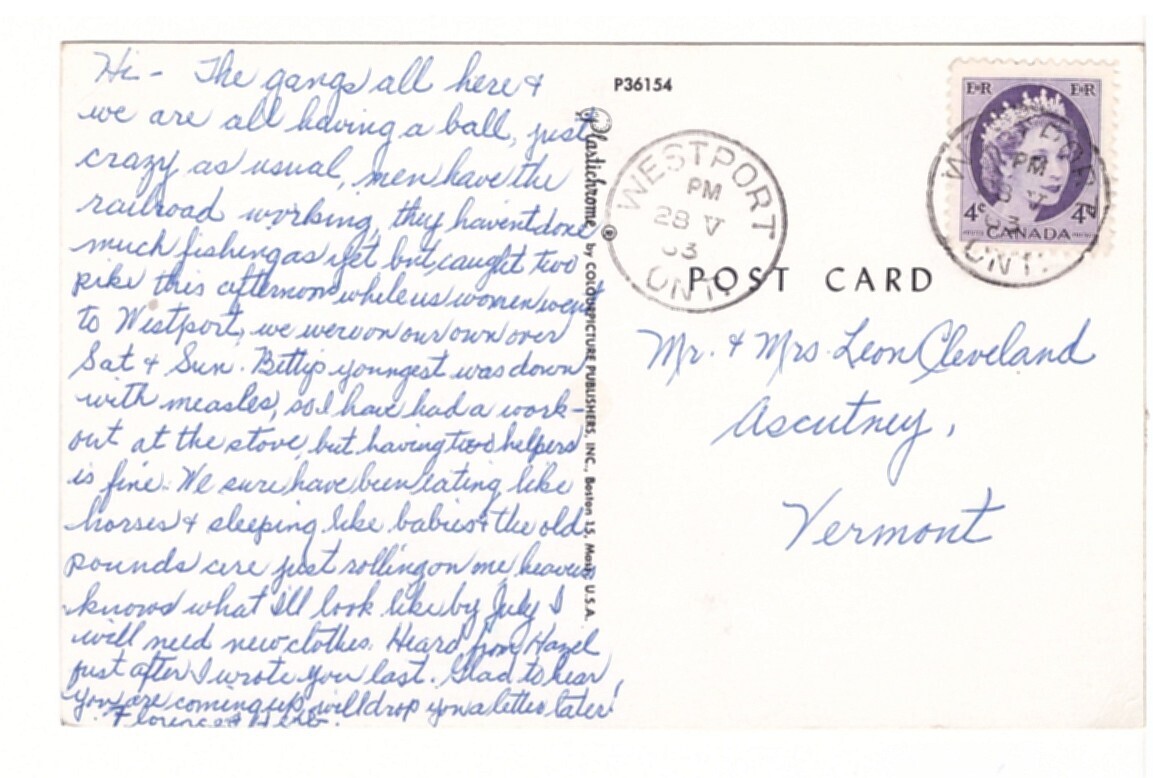 Hi - The gangs all here &
we are all having a ball, just
crazy as usual, men have the
railroad working, they havent done
much fishing as yet but caught two
pike this afternoon while us women went
to Westport, we were on our own over
Sat & Sun. Bettys youngest was down
with measles, so I have had a work-
out at the stove, but having two helpers
is fine. We sure have been eating like
horses & sleeping like babies & the old
pounds are just rolling on me heavens
knows what I'll look like by July I
will need new clothes. Heard from Hazel
just after I wrote you last. Glad to hear
you are coming up, will drop you a letter later!
Florence & Herb.
Plastichrome ® by COLOURPICTURE PUBLISHERS, INC., Boston 15, Mass. U.S.A.
P36154
WESTPORT
PM
28 V
63
ONT.
E R E R
4c 4c
CANADA
WESTPORT
PM
28 V
63
ONT.
POST CARD
Mr. & Mrs. Leon Cleveland
Ascutney,
Vermont